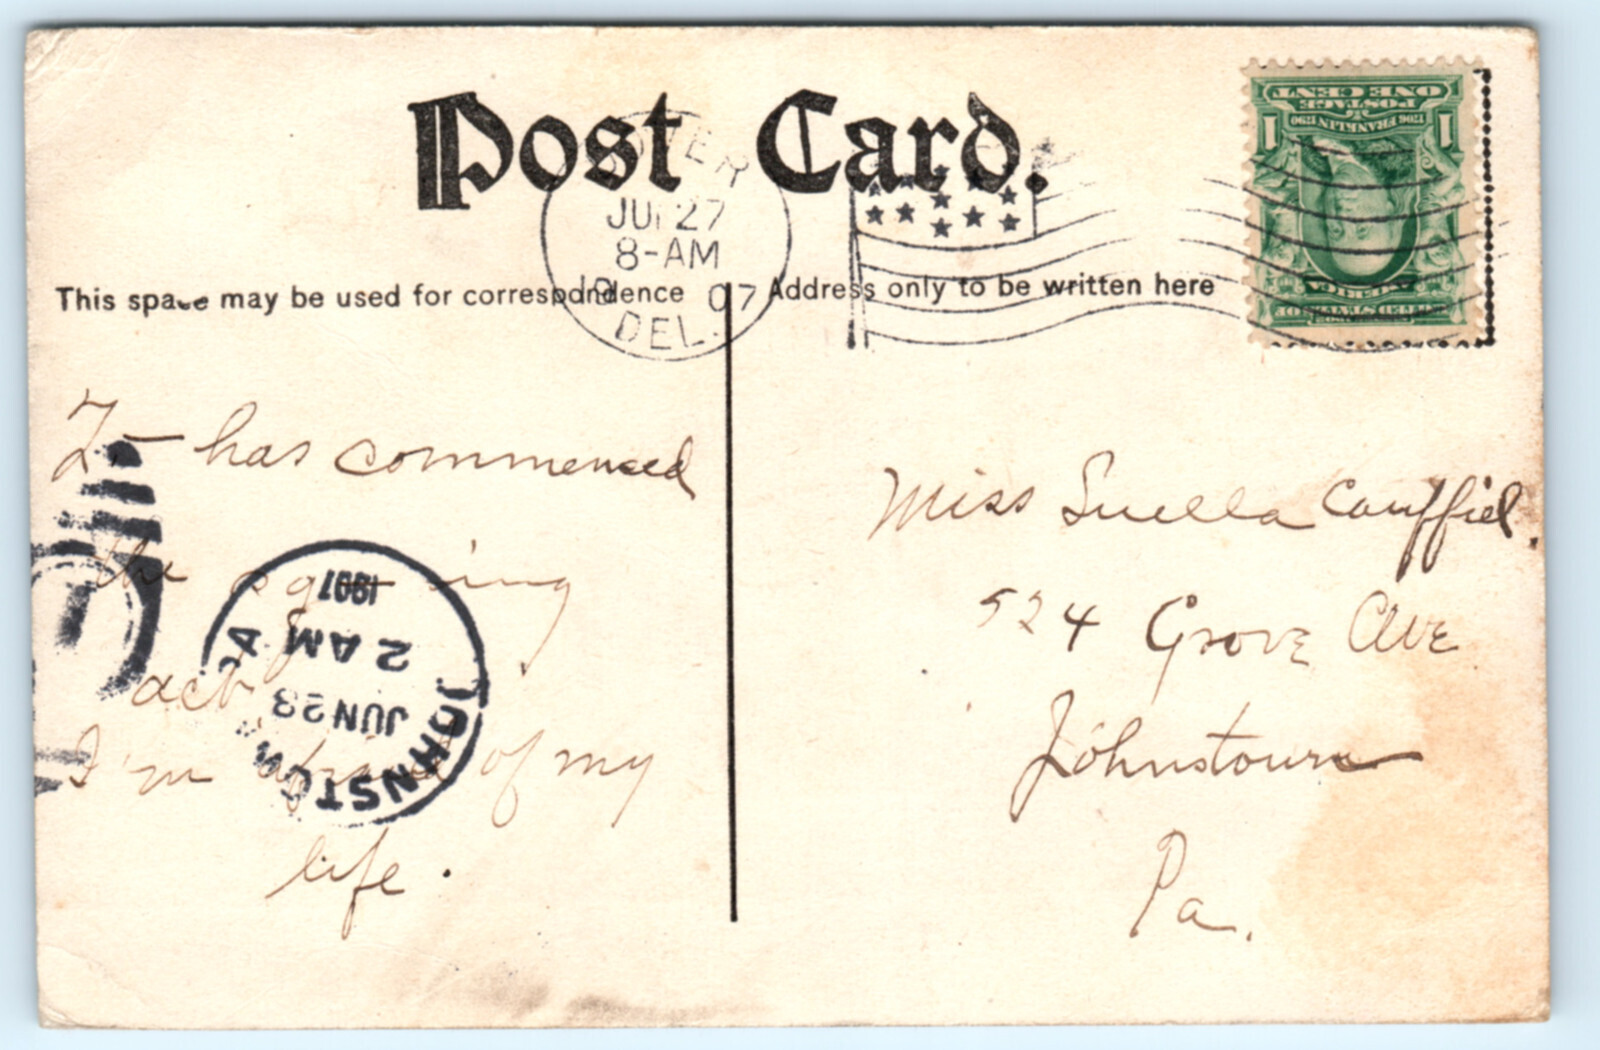 Post Card.
DOVER
JUN 27
8-AM
07
DEL.
This space may be used for correspondence
Address only to be written here
ONE CENT
POSTAGE
1706 FRANKLIN 1790
1 1
UNITED STATES OF
AMERICA
It has commenced
the ing
act
I'm afraid of my
life.
JOHNSTOWN PA
JUN 28
2 AM
1907
Miss Suella Cauffiel.
524 Grove Ave
Johnstown
Pa.